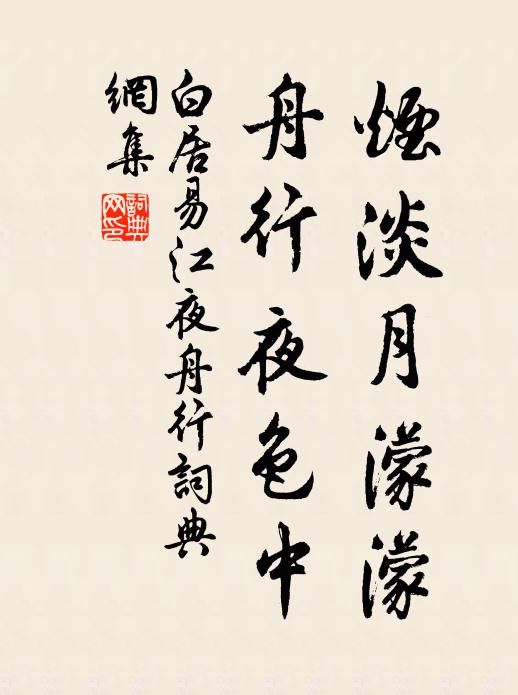 煙淡月濛濛
舟行夜色中
白居易江夜舟行詞典
網集
詞典
网印